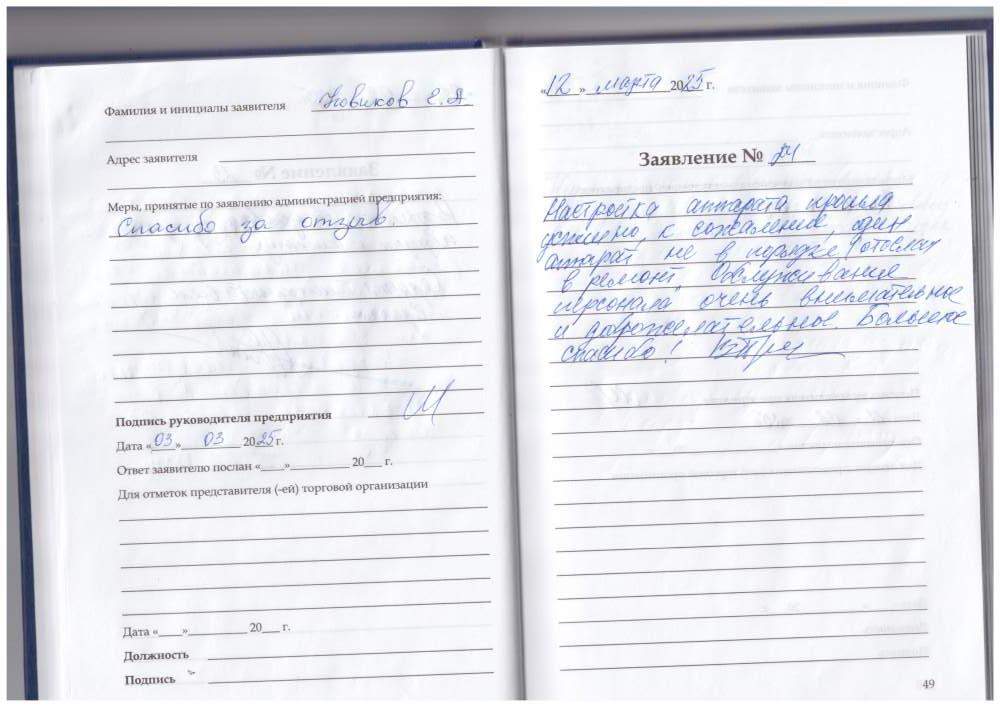 Фамилия и инициалы заявителя Новиков Е.А
Адрес заявителя
Меры, принятые по заявлению администрацией предприятия:
Спасибо за отзыв.
Подпись руководителя предприятия
Дата «03» 03 2025 г.
Ответ заявителю послан «    » 20    г.
Для отметок представителя (-ей) торговой организации
Дата «    » 20    г.
Должность
Подпись
«12» марта 2025 г.
Заявление №
Настройка аппарата прошла
успешно, к сожалению, один
аппарат не в порядке, отослали
в ремонт. Обслуживание
персонала очень внимательное
и доброжелательное. Большое
спасибо!
49